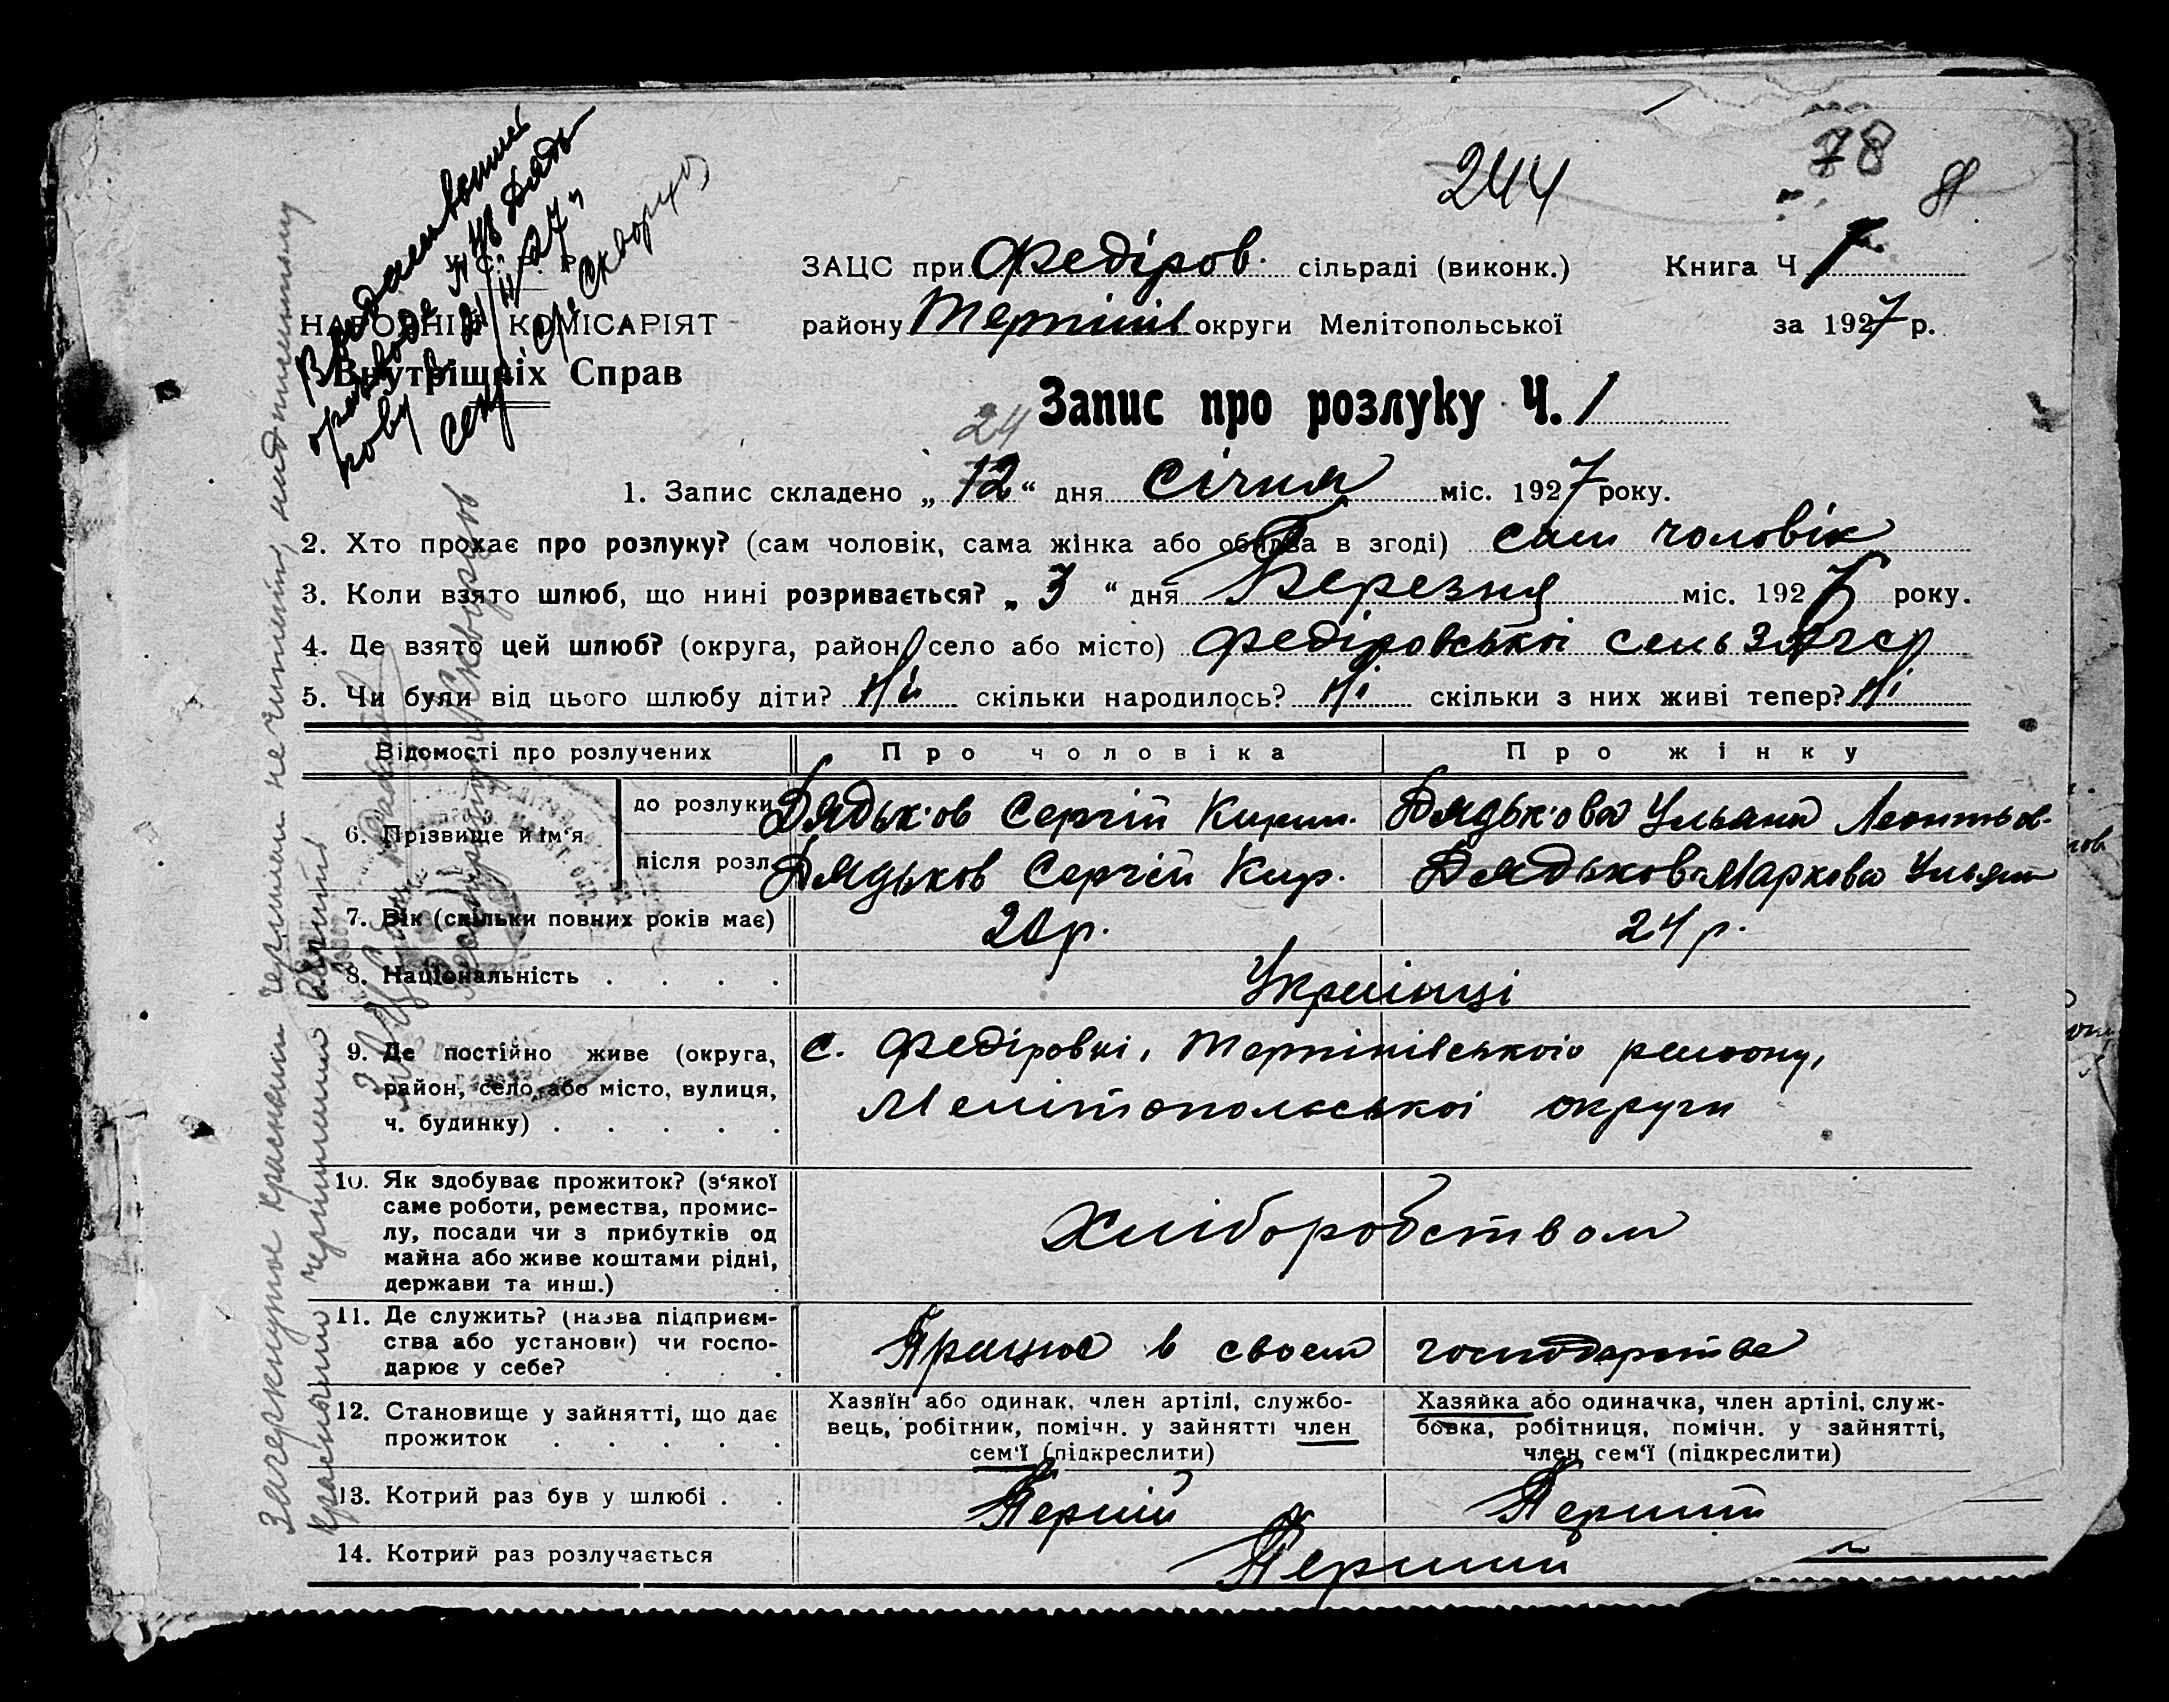 244
78
ЗАЦС при Федіров. сільраді (виконк.) Книга Ч 1
НАРОДНІЙ КОМІСАРІЯТ
району Терпінів округи Мелітопольської за 1927 р.
Внутрішніх Справ
Запис про розлуку Ч. 1
24
1. Запис складено „12“ дня Січня міс. 1927 року.
2. Хто прохає про розлуку? (сам чоловік, сама жінка або обидва в згоді) сам чоловік
3. Коли взято шлюб, що нині розривається? „3“ дня Березня міс. 192 року.
4. Де взято цей шлюб? (округа, район, село або місто) Федіровської сель
5. Чи були від цього шлюбу діти? Ні скільки народилось? Ні скільки з них живі тепер? Ні
Відомості про розлучених Про чоловіка Про жінку
6. Прізвище й ім‘я до розлуки Дядьков Сергій Кирил. Дядькова Ульяна Леонтьов.
після розл. Дядьков Сергій Кир. Дядькова Маркова Ульян
7. Вік (скільки повних років має) 20 р. 24 р.
8. Національність . . . . Українці
9. Де постійно живе (округа, район, село, або місто, вулиця, ч. будинку) . . . . . с. Федіровкі, Терпінівського району,
Мелітопольської округи
10. Як здобуває прожиток? (з‘якої
саме роботи, ремества, промис-
лу, посади чи з прибутків од
майна або живе коштами рідні,
держави та инш.) Хліборобством
11. Де служить? (назва підприєм-
ства або установи) чи госпо-
дарює у себе? . . . Працює в своєм господарстве
12. Становище у зайнятті, що дає
прожиток . . . . .
Хазяїн або одинак, член артілі, службо-
вець, робітник, помічн. у зайнятті член
сем‘ї (підкреслити)
Хазяйка або одиначка, член артілі, служ-
бовка, робітниця, помічн. у зайнятті,
член сем‘ї (підкреслити)
13. Котрий раз був у шлюбі . . Перший Перший
14. Котрий раз розлучається Перший
Зачеркнутое красными чернилами не читать, надписанному
красными чернилами верить